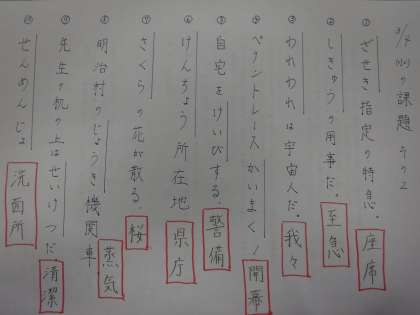 3/4 の課題 その2
① ざせき指定の特急。 座席
② しきゅうの用事だ。 至急
③ われわれは宇宙人だ。 我々
④ ペナントレースかいまく! 開幕
⑤ 自宅をけいびする。 警備
⑥ けんちょう所在地 県庁
⑦ さくらの花が散る。 桜
⑧ 明治村のじょうき機関車 蒸気
⑨ 先生の机の上はせいけつだ。 清潔
⑩ せんめんじょ 洗面所